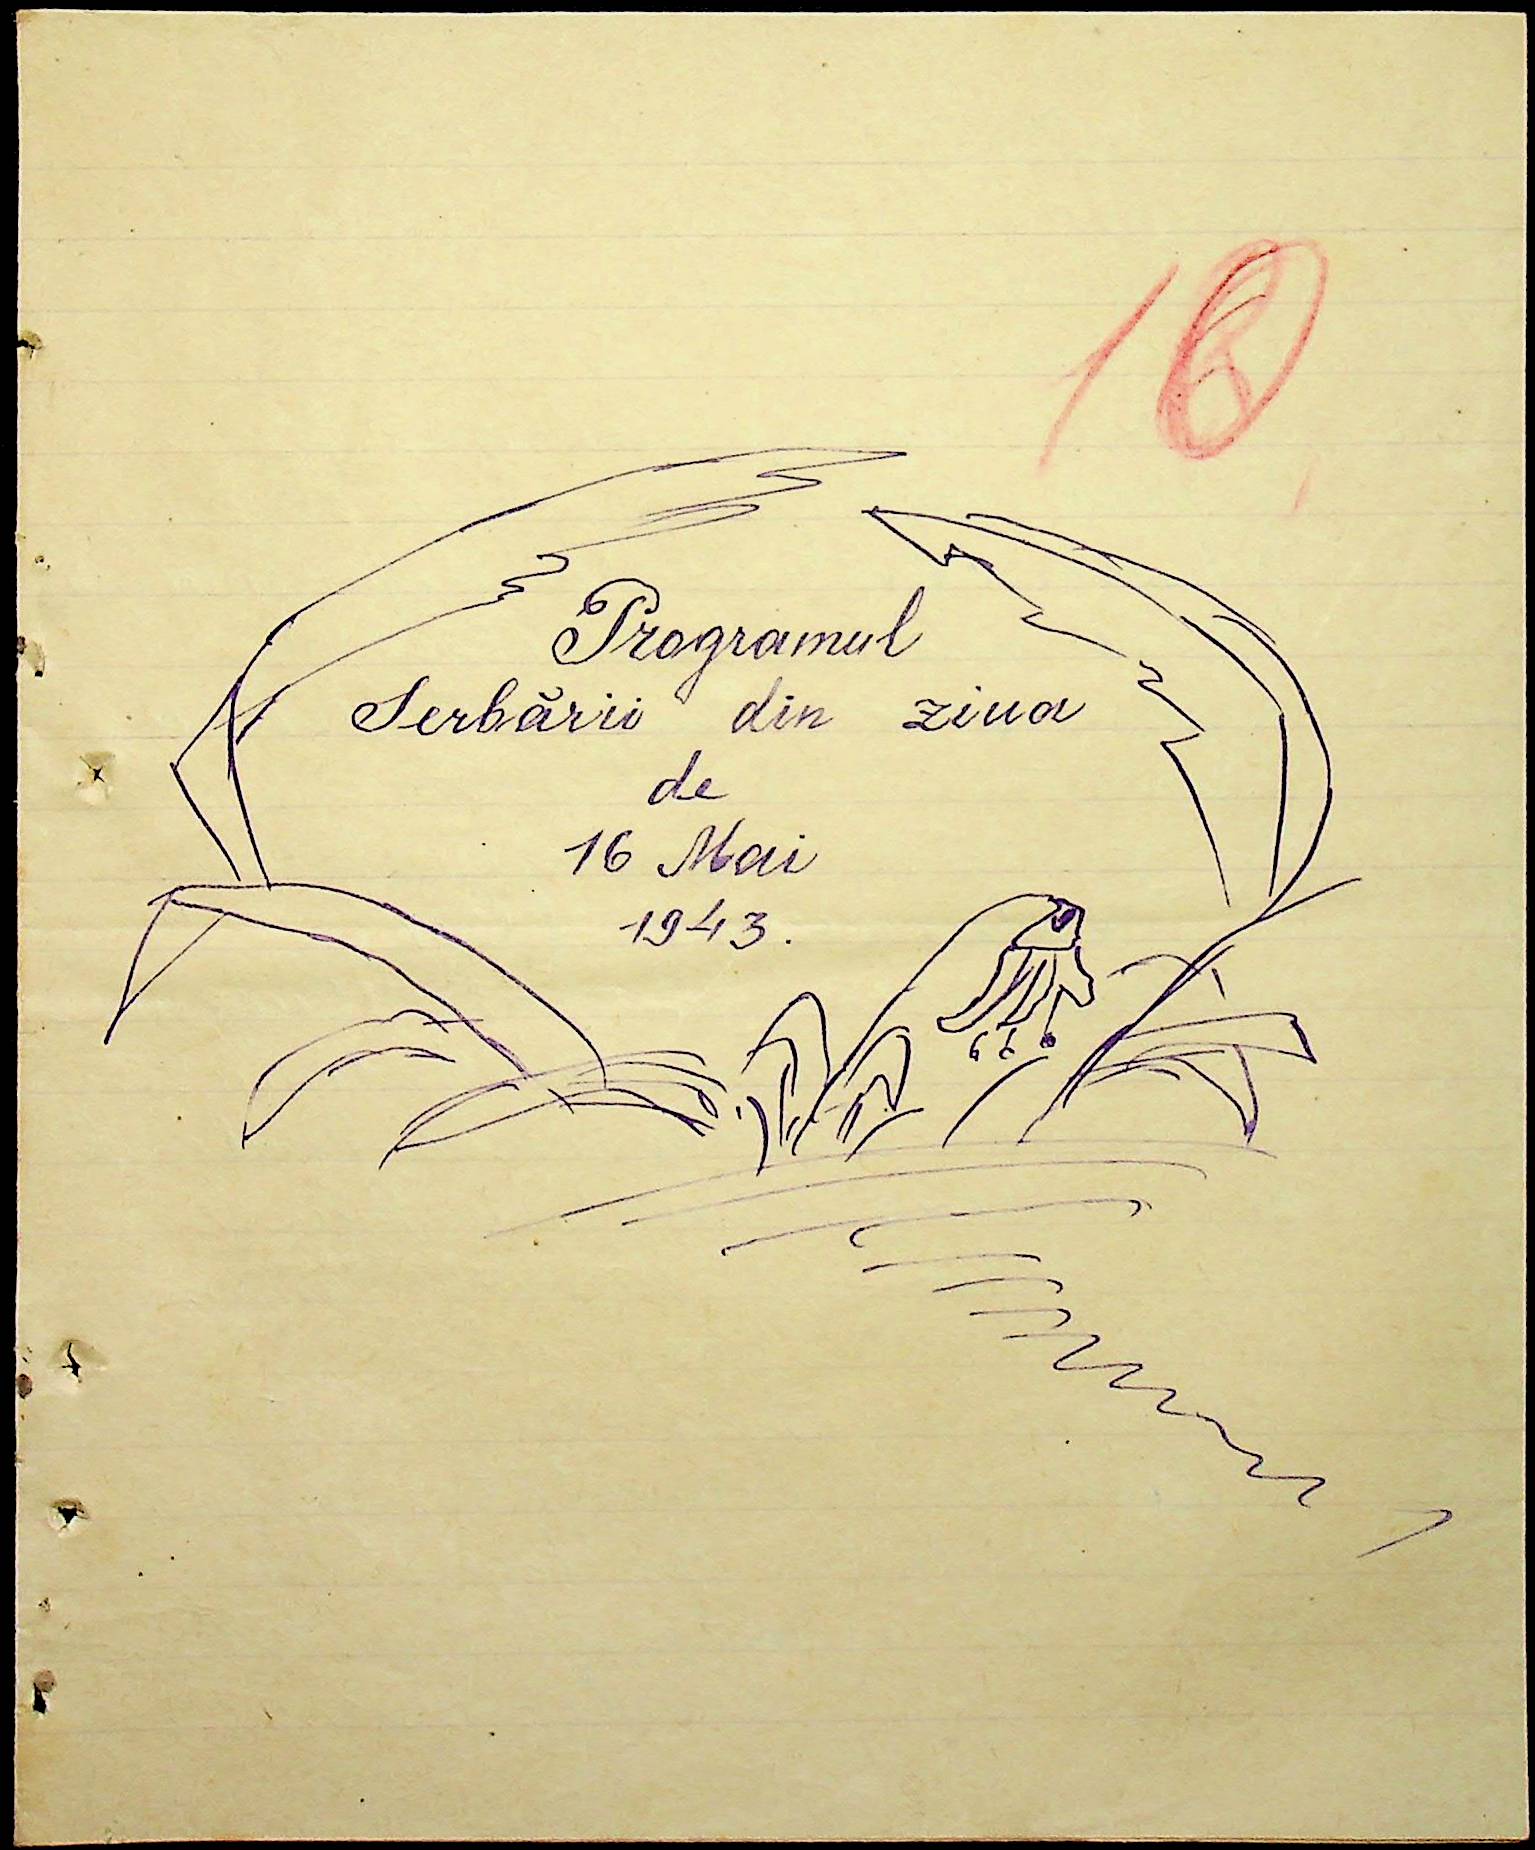 Programul
Serbării din ziua
de
16 Mai
1943.